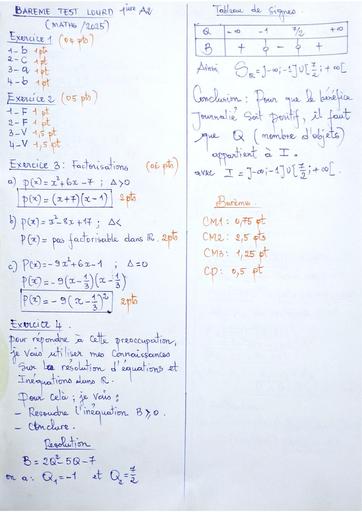 BAREME TEST LOURD 1ière A2
(MATHS / 2025)
Exercice 1 (04 pts)
1 - b 1 pt
2 - C 1 pt
3 - a 1 pt
4 - b 1 pt
Exercice 2 (05 pts)
1 - F 1 pt
2 - F 1 pt
3 - V 1,5 pt
4 - V 1,5 pt
Exercice 3 : Factorisations (06 pts)
a) P(x) = x²+6x-7 ; Δ>0
P(x) = (x+7)(x-1) 2pts
b) P(x) = x²-8x+17 ; Δ<
P(x) = pas factorisable dans R. 2pts
c) P(x) = -9x²+6x-1 ; Δ=0
P(x) = -9(x-1/3)(x-1/3)
P(x) = -9(x-1/3)² 2pts
Exercice 4.
Pour répondre à cette preoccupation,
je vais utiliser mes connaissances
Sur la résolution d'équations et
Inéquations dans R.
Pour Cela ; je vais :
- Resoudre l'inéquation B ⩾ 0.
- Conclure.
Resolution
B = 2Q²-5Q-7
on a : Q₁ = -1 et Q₂ = 7/2
Tableau de Signes.
Q -∞ -1 7/2 +∞
B + 0 - 0 +
Ainsi S_R = ]-∞;-1]U[7/2;+∞[
Conclusion : Pour que le bénéfice
journalié soit positif, il faut
que Q (nombre d'objets)
appartient à I.
avec I = ]-∞;-1]U[7/2;+∞[.
Barème
CM1 : 0,75 pt
CM2 : 2,5 pts
CM3 : 1,25 pt
CP : 0,5 pt